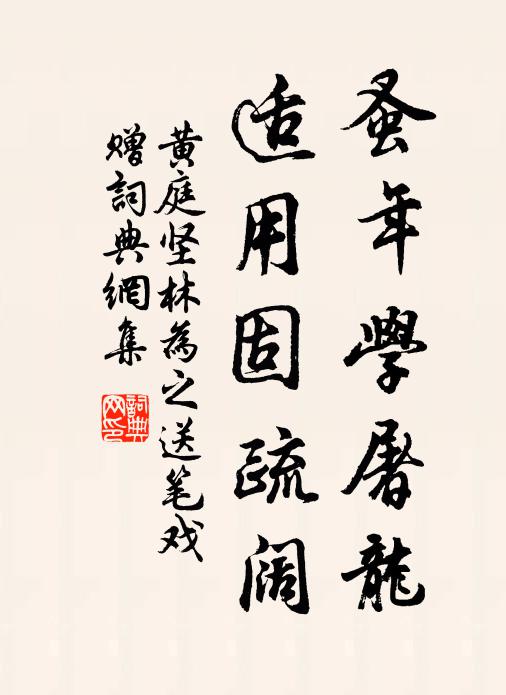 蚤年學屠龍
适用固疏阔
黄庭坚林為之送笔戏
赠詞典網集
詞典網印